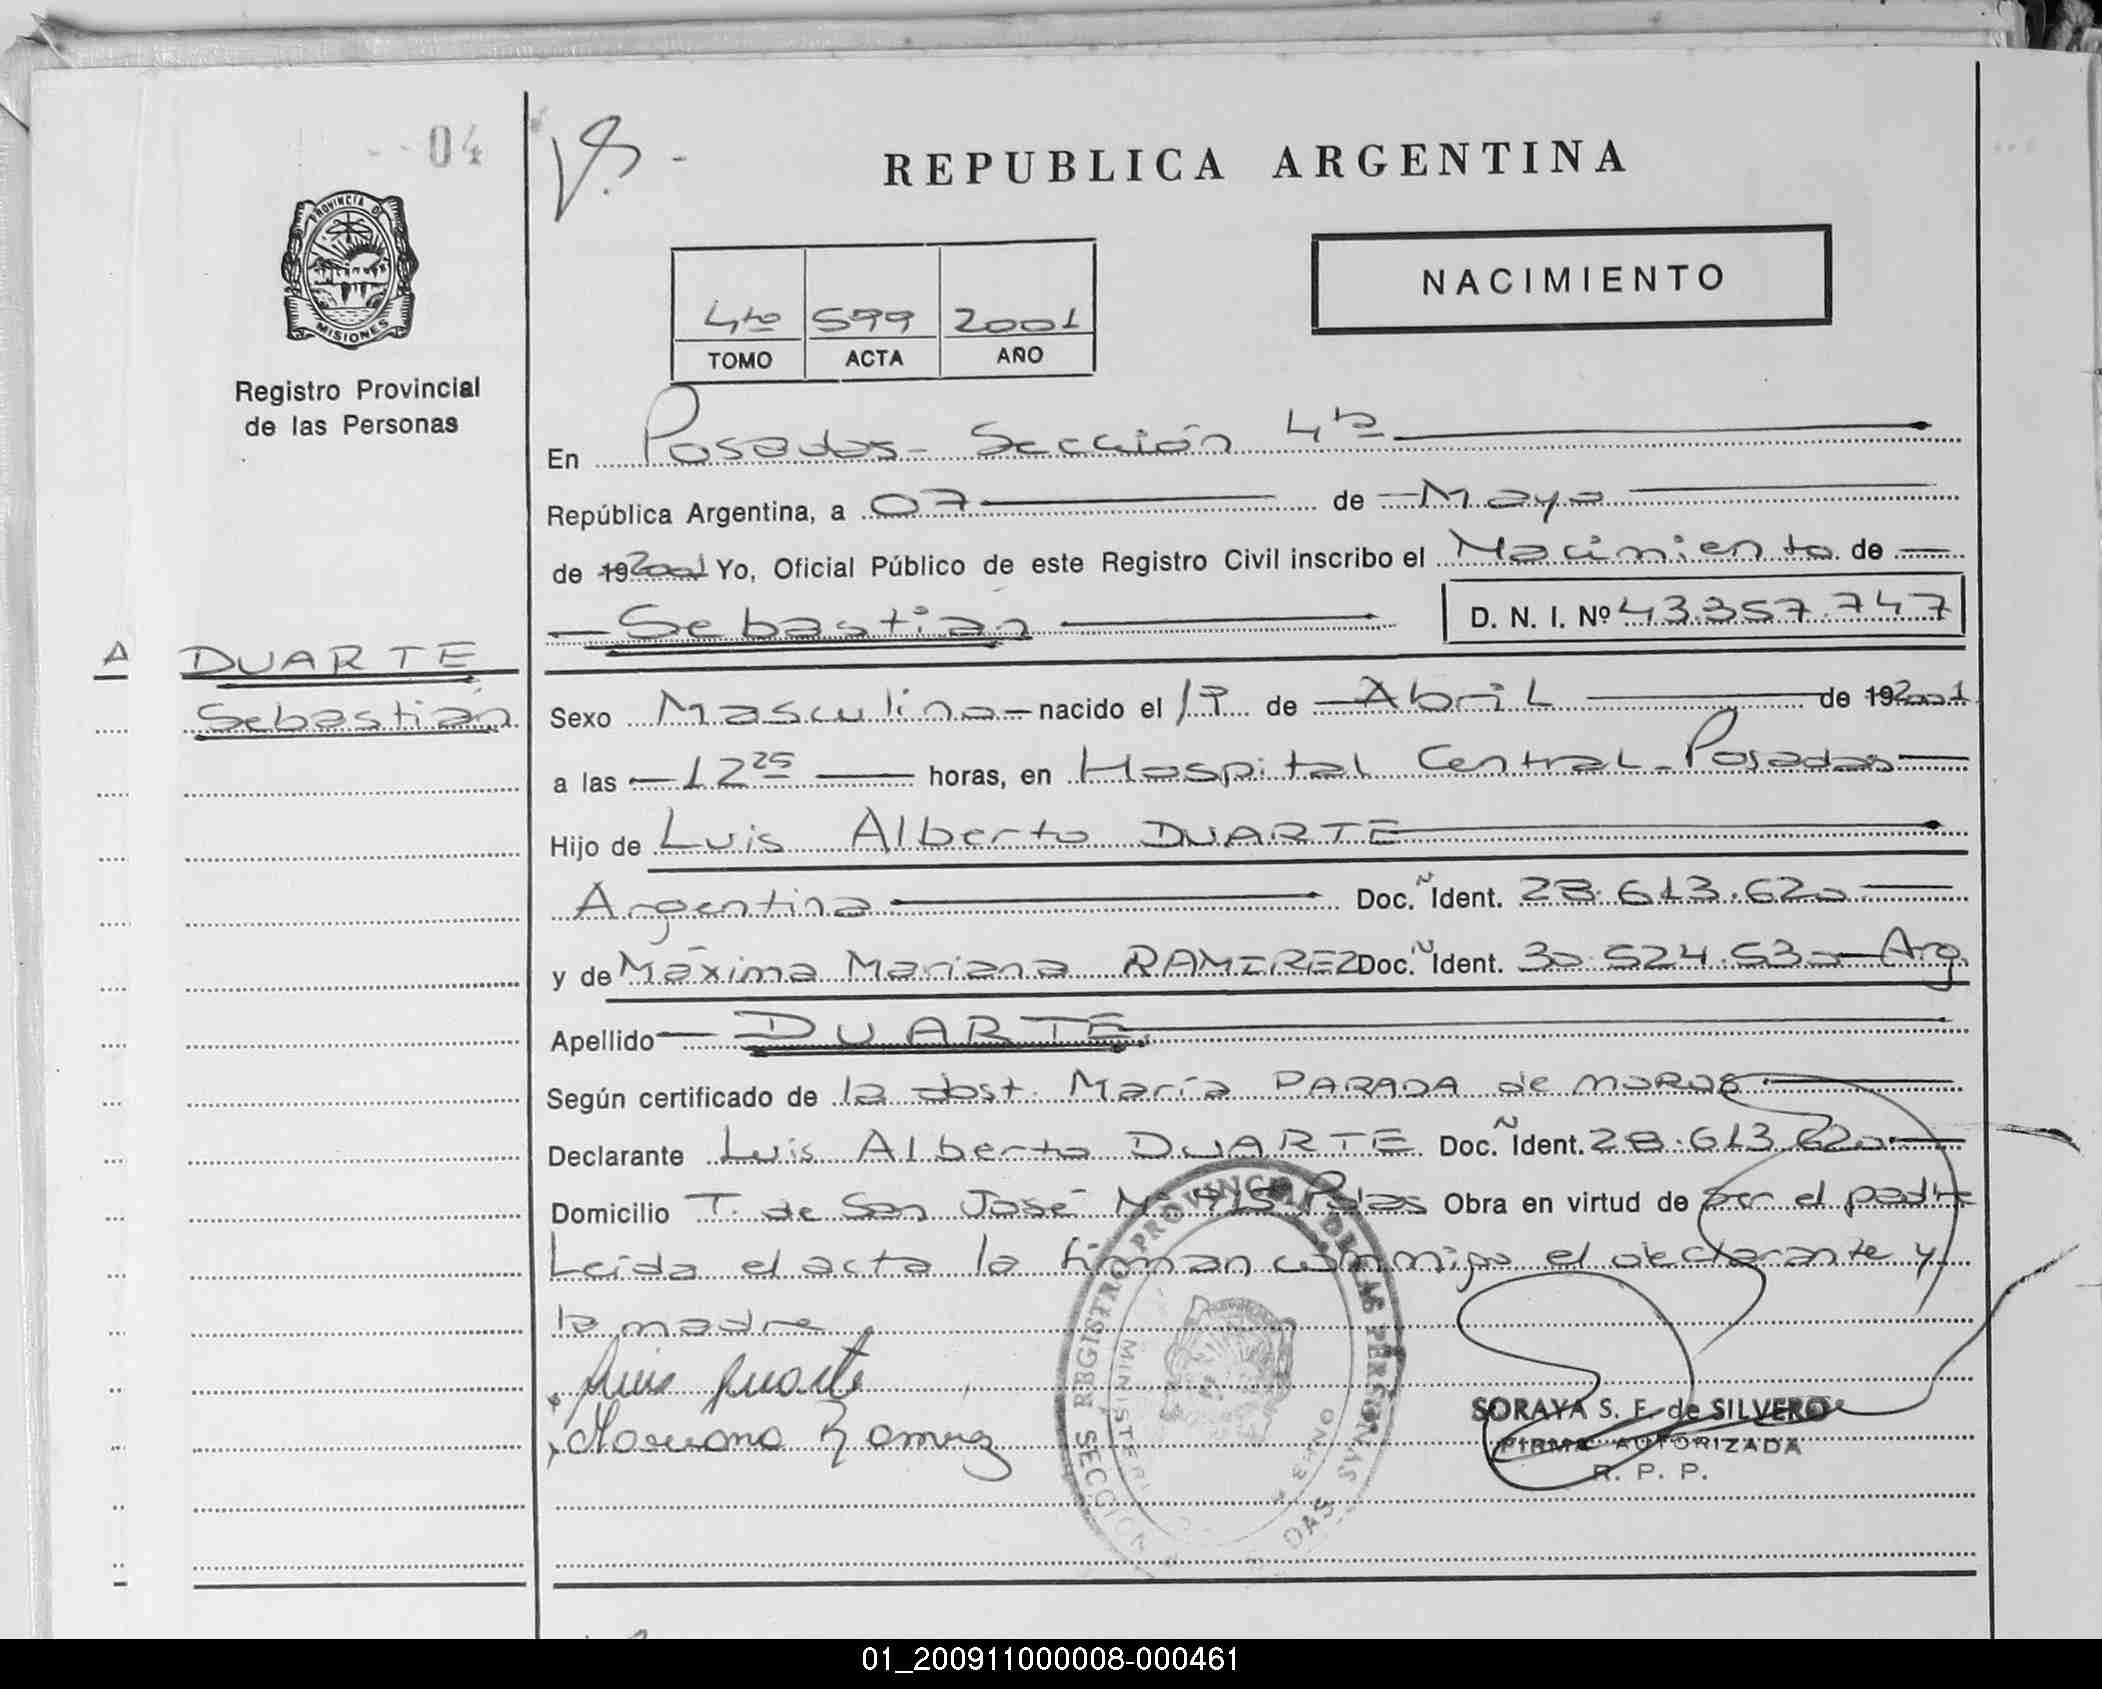 04
REPUBLICA ARGENTINA
NACIMIENTO
4to 599 2001
TOMO ACTA AÑO
PROVINCIA DE MISIONES
Registro Provincial
de las Personas
En Posadas - Sección 4ta
República Argentina, a 07 de Mayo
de 19 2001 Yo, Oficial Público de este Registro Civil inscribo el Nacimiento de
Sebastián D. N. I. Nº 43.357.747
DUARTE
Sebastián
Sexo Masculino nacido el de Abril de 19 2001
a las 12 25 horas, en Hospital Central - Posadas
Hijo de Luis Alberto DUARTE
Argentina Doc. Ident. 28.613.620
y de Máxima Mariana RAMIREZ Doc. Ident. 30.524.530 Arg.
Apellido DUARTE
Según certificado de la obst. María PARADA de
Declarante Luis Alberto DUARTE Doc. Ident. 28.613.620
Domicilio T. de San José Nº 415 Pdas Obra en virtud de ser el padre
Leida el acta la firman conmigo el declarante y
la madre
Luis Duarte
Mariana Ramirez
REGISTRO PROVINCIAL DE LAS PERSONAS
SECCION
SORAYA S. F. de SILVERO
FIRMA AUTORIZADA
R. P. P.
01_200911000008-000461